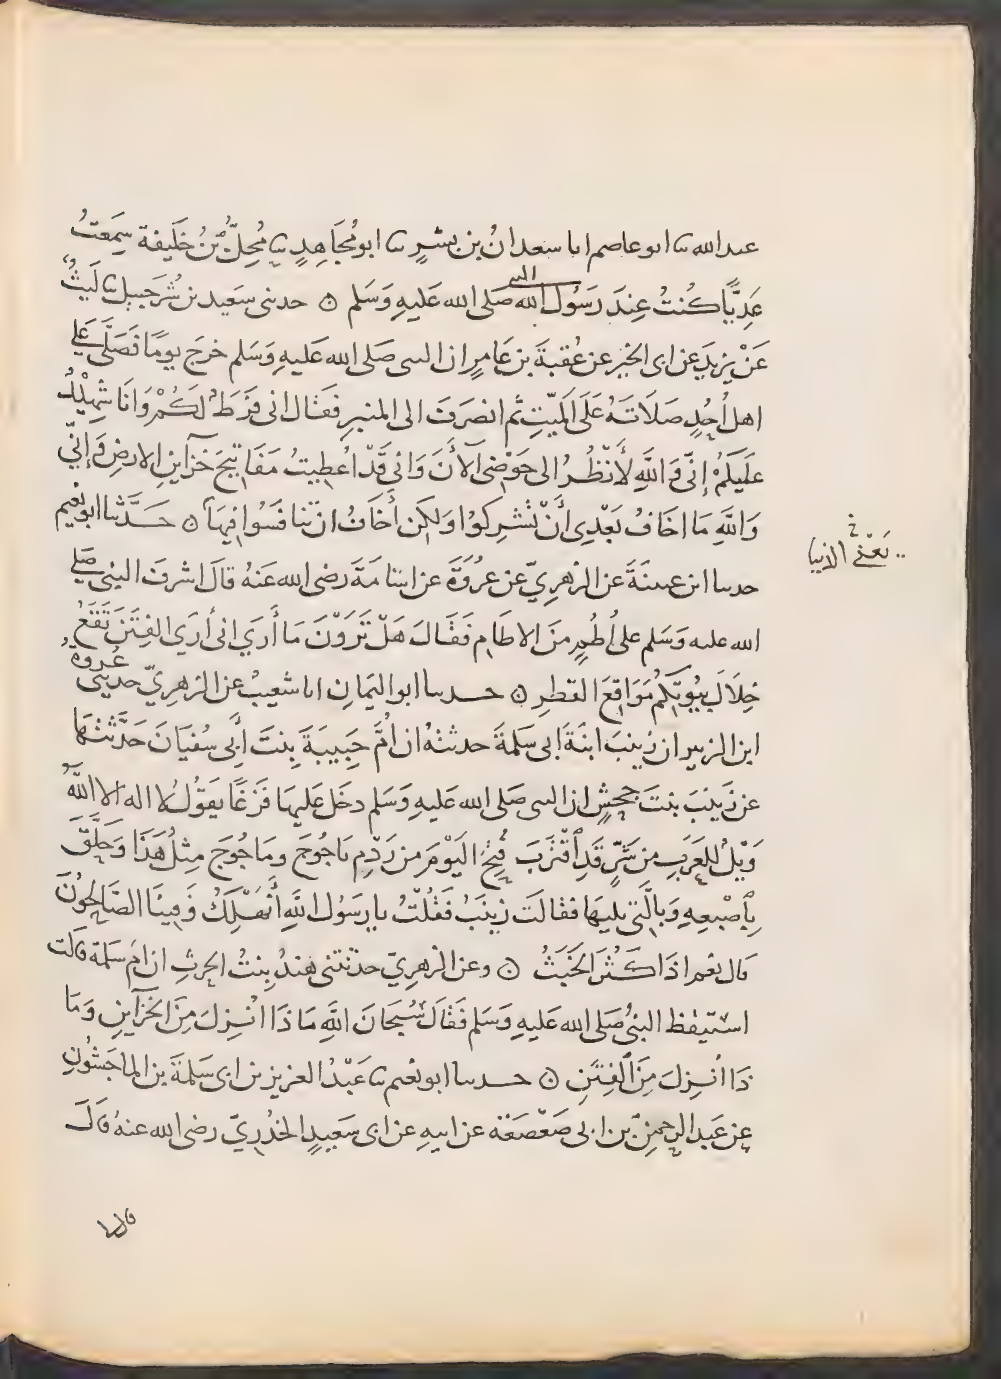 عبد الله ثنا ابو عاصم انا سعدانُ بن بشرٍ ثنا ابو مُجَاهِدٍ ثنا مُحِلُّ بْنُ خَلِيفة سَمِعتُ
عَدِيًّا كُنتُ عِندَ رَسُول الله صَلى الله عَليهِ وَسَلم ۞ حدثنى سَعِيد بن شُرَحبِيل ثنا لَيثُ
النبى
عَنْ يزيدَ عن ابى الخيرِ عن عُقبَةَ بن عَامرٍ ان النبى صَلى الله عَليهِ وَسَلم خرجَ يومًا فَصَلَّى عَلى
اهل أُحُدٍ صَلَاتَهُ عَلَى المَيّتِ ثم انصَرَفَ الى المنبرِ فقال انى فَرَطٌ لَكُمْ وَانَا شَهِيْدٌ
عَلَيكُمْ إِنِّى وَاللَّهِ لَأَنْظُرُ الى حَوْضِى الآنَ وَانى قَدْ اُعطِيتُ مَفَاتِيحَ خَزَآينِ الارضِ وَإِنّى
وَاللَّهِ مَا اخَافُ بَعْدِى أَنْ تُشرِكوُا وَلكِن أَخَافُ ان تَنافَسُوا فِيهَا ۞ حَدَّثنا ابو نُعَيم
حدثنا ابن عيينَةَ عن الزهرِيّ عن عُروَةَ عن اسَامَةَ رضى الله عَنهُ قالَ اشرفَ النبىُ صَلى
الله عليه وَسَلم على أُطُمٍ مِنَ الاطَامِ فَقَالَ هَلْ تَرَوْنَ مَا أَرَي انى أَرَي الفِتَنَ تَقَعُ
خِلَالَ بيُوتِكُم مَوَاقِعَ القطرِ ۞ حدثنا ابو اليَمانِ انا شعيبٌ عن الزهرِيّ حدثنى عُروةُ
ابن الزبير ان زينبَ ابنَةَ ابى سَلمَةَ حدثتهُ ان أُمَّ حَبِيبَةَ بِنتَ أَبِى سُفيَانَ حَدَّثَتْهَا
عن زَينَبَ بنتِ جحشٍ ان النبى صَلى الله عَليهِ وَسَلم دخَل عَليهَا فَزِعًا يقوُلُ لا اله الا اللَّهُ
وَيْلٌ للعَرَبِ مِن شَرٍّ قَدِ اقْتَرَبَ فُتِحَ اليَوْمَ مِن رَدْمِ يَاجُوجَ ومَاجُوجَ مِثلُ هَذَا وَحَلَّقَ
بِإصْبعِهِ وَبِالَّتِى تليهَا فقالَت زينَبُ فَقُلْتُ يا رَسُولَ اللَّهِ أَنَهْلَكُ وَفِينَا الصَّالِحُونَ
قال نعم اذَا كَثُرَ الخَبَثُ ۞ وعن الزهرِيّ حدثتنى هندُ بِنتُ الحرثِ ان ام سَلمة قالت
استَيقظَ النبىُ صَلى الله عَليهِ وَسَلم فَقالَ سُبحَانَ اللَّهِ مَاذَا اُنْزِلَ مِنَ الخَزَآينِ وَمَا
ذَا أُنْزِلَ مِنَ الفِتَنِ ۞ حدثنا ابو نعُيم ثنا عَبْدُ العزيز بن ابى سَلمَةَ بن الماجَشُونِ
عن عَبد الرحمنِ بن ابى صَعْصَعَة عن ابيهِ عن ابى سَعِيدٍ الخُدْرِيّ رضى الله عنهُ قالَ
يَعْنى الدنيا
قال لى